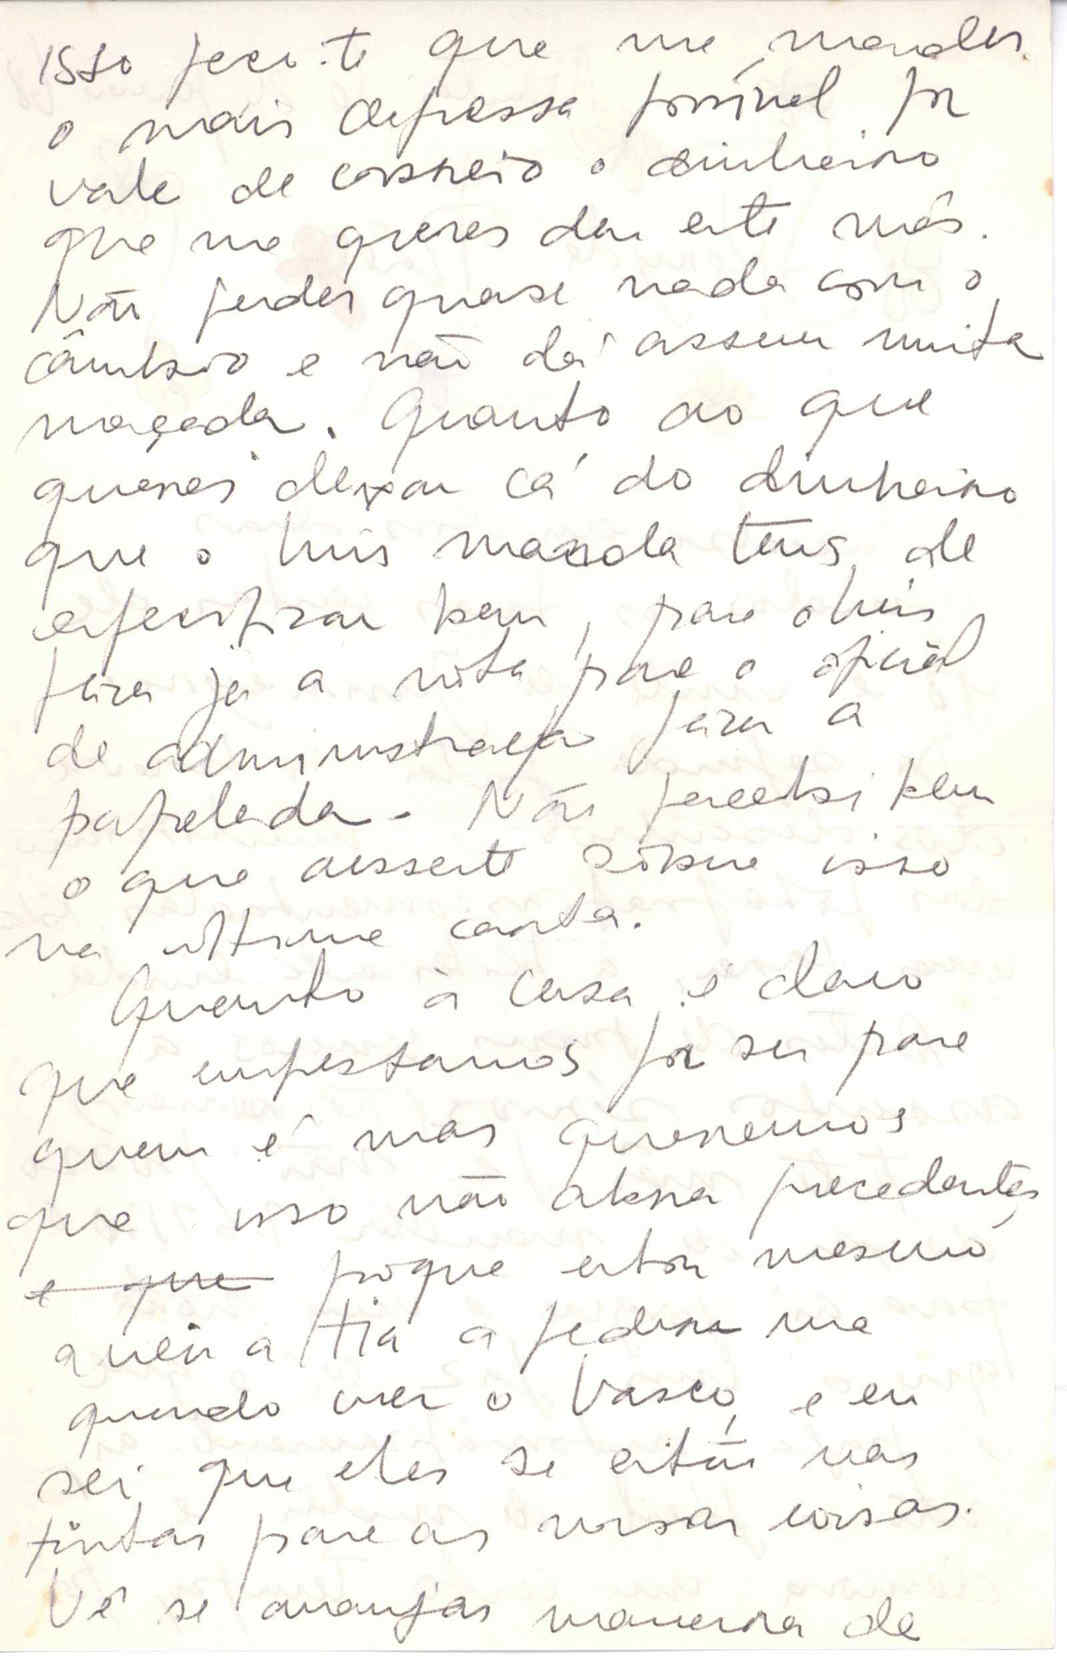 isso peço-te que me mandes
o mais depressa possível por
vale de correio o dinheiro
que me queres dar este mês.
Não perdes quase nada com o
câmbio e não dá assim muita
maçada. Quanto ao que
queres deixar cá do dinheiro
que o Luis manda tens de
especificar bem, para o Luis
fazer já a nota para o oficial
de administração fazer a
papelada. Não percebi bem
o que disseste sôbre isso
na última carta.
Quanto à casa é claro
que emprestamos por ser para
quem é mas queremos
que isso não abra precedentes
e que porque estou mesmo
a ver a tia a pedir-me
quando vier o Vasco, e eu
sei que eles se estão nas
tintas para as nossas coisas.
Vê se arranjas maneira de